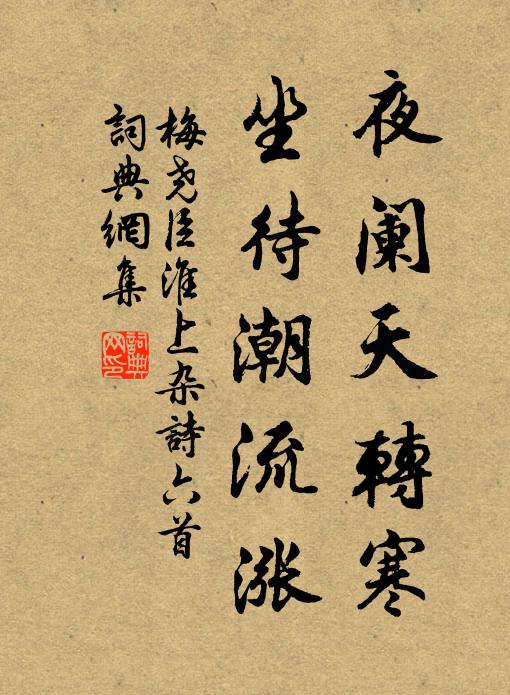 夜阑天轉寒
坐待潮流涨
梅尧臣淮上杂詩六首
詞典網集
詞典网印